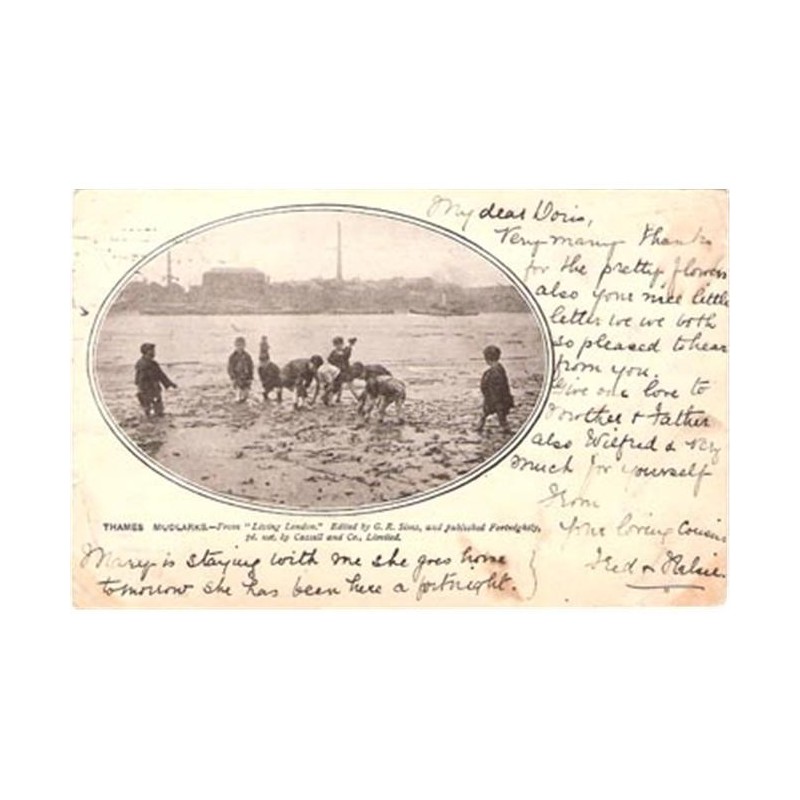 My dear Doris,
Very many thanks
for the pretty flowers
also your nice little
letter we we both
so pleased to hear
from you.
Give our love to
Mother & Father
also Wilfred & very
much for yourself
From
your loving Cousins
Fred &
THAMES MUDLARKS.—From "Living London." Edited by G. R. Sims, and published Fortnightly,
7d. net, by Cassell and Co., Limited.
Mary is staying with me she goes home
tomorrow she has been here a fortnight.